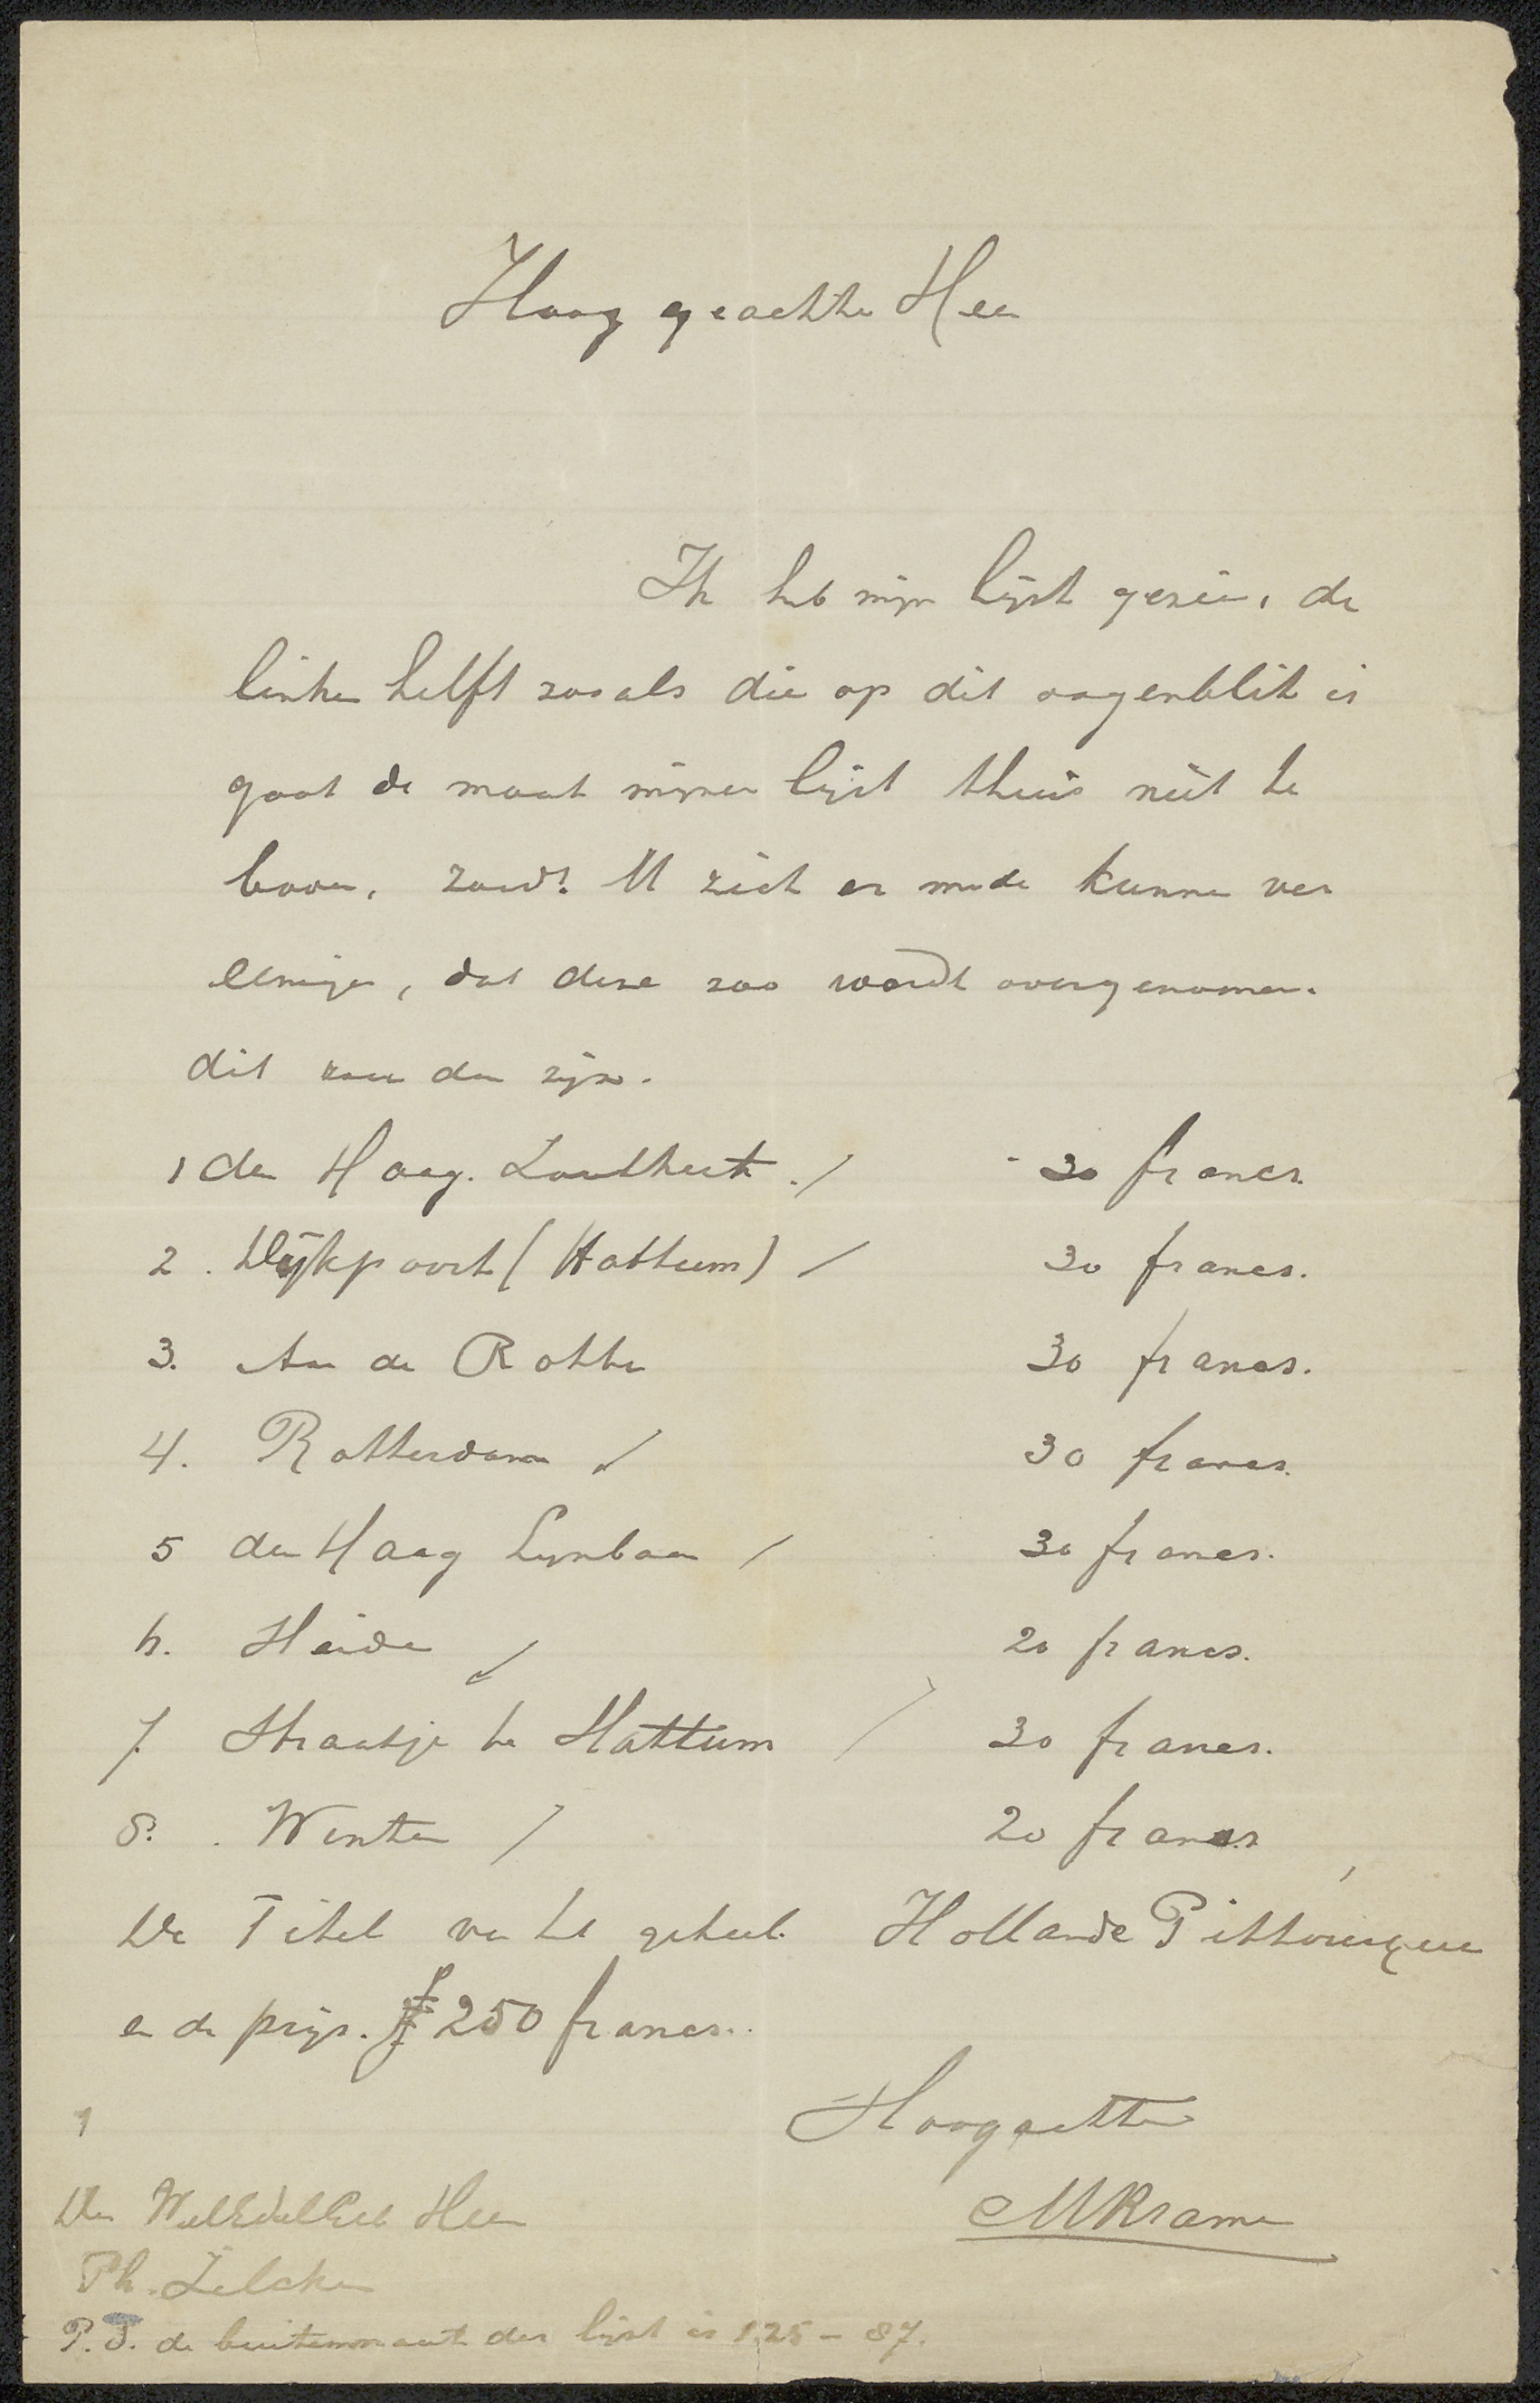 Hoog geachte Heer
Ik heb mijn lijst gezien, de
linker helft zooals die op dit oogenblik is
gaat de maat mijner lijst thuis niet te
boven, zoudt U zich er mede kunnen ver
eenigen, dat deze zoo wordt overgenomen.
dit zou dan zijn.
1 den Haag. Zoutkeet. / - 30 francs.
2. Dijkpoort (Hattum) / 30 francs.
3. Aan de Rotte 30 francs.
4. Rotterdam / 30 francs.
5 den Haag Lijnbaan / 30 francs.
6. Heide / 20 francs.
7. Straatje te Hattum / 30 francs.
8. Winter / 20 francs
De Titel van het geheel. Hollande Pittoresque
en de prijs. 250 francs.
Hoogachtend
MKramer
1
Den WelEdelGeb Heer
Ph. Zilcken
P.S. de buitenmaat der lijst is 1,25 - 87.